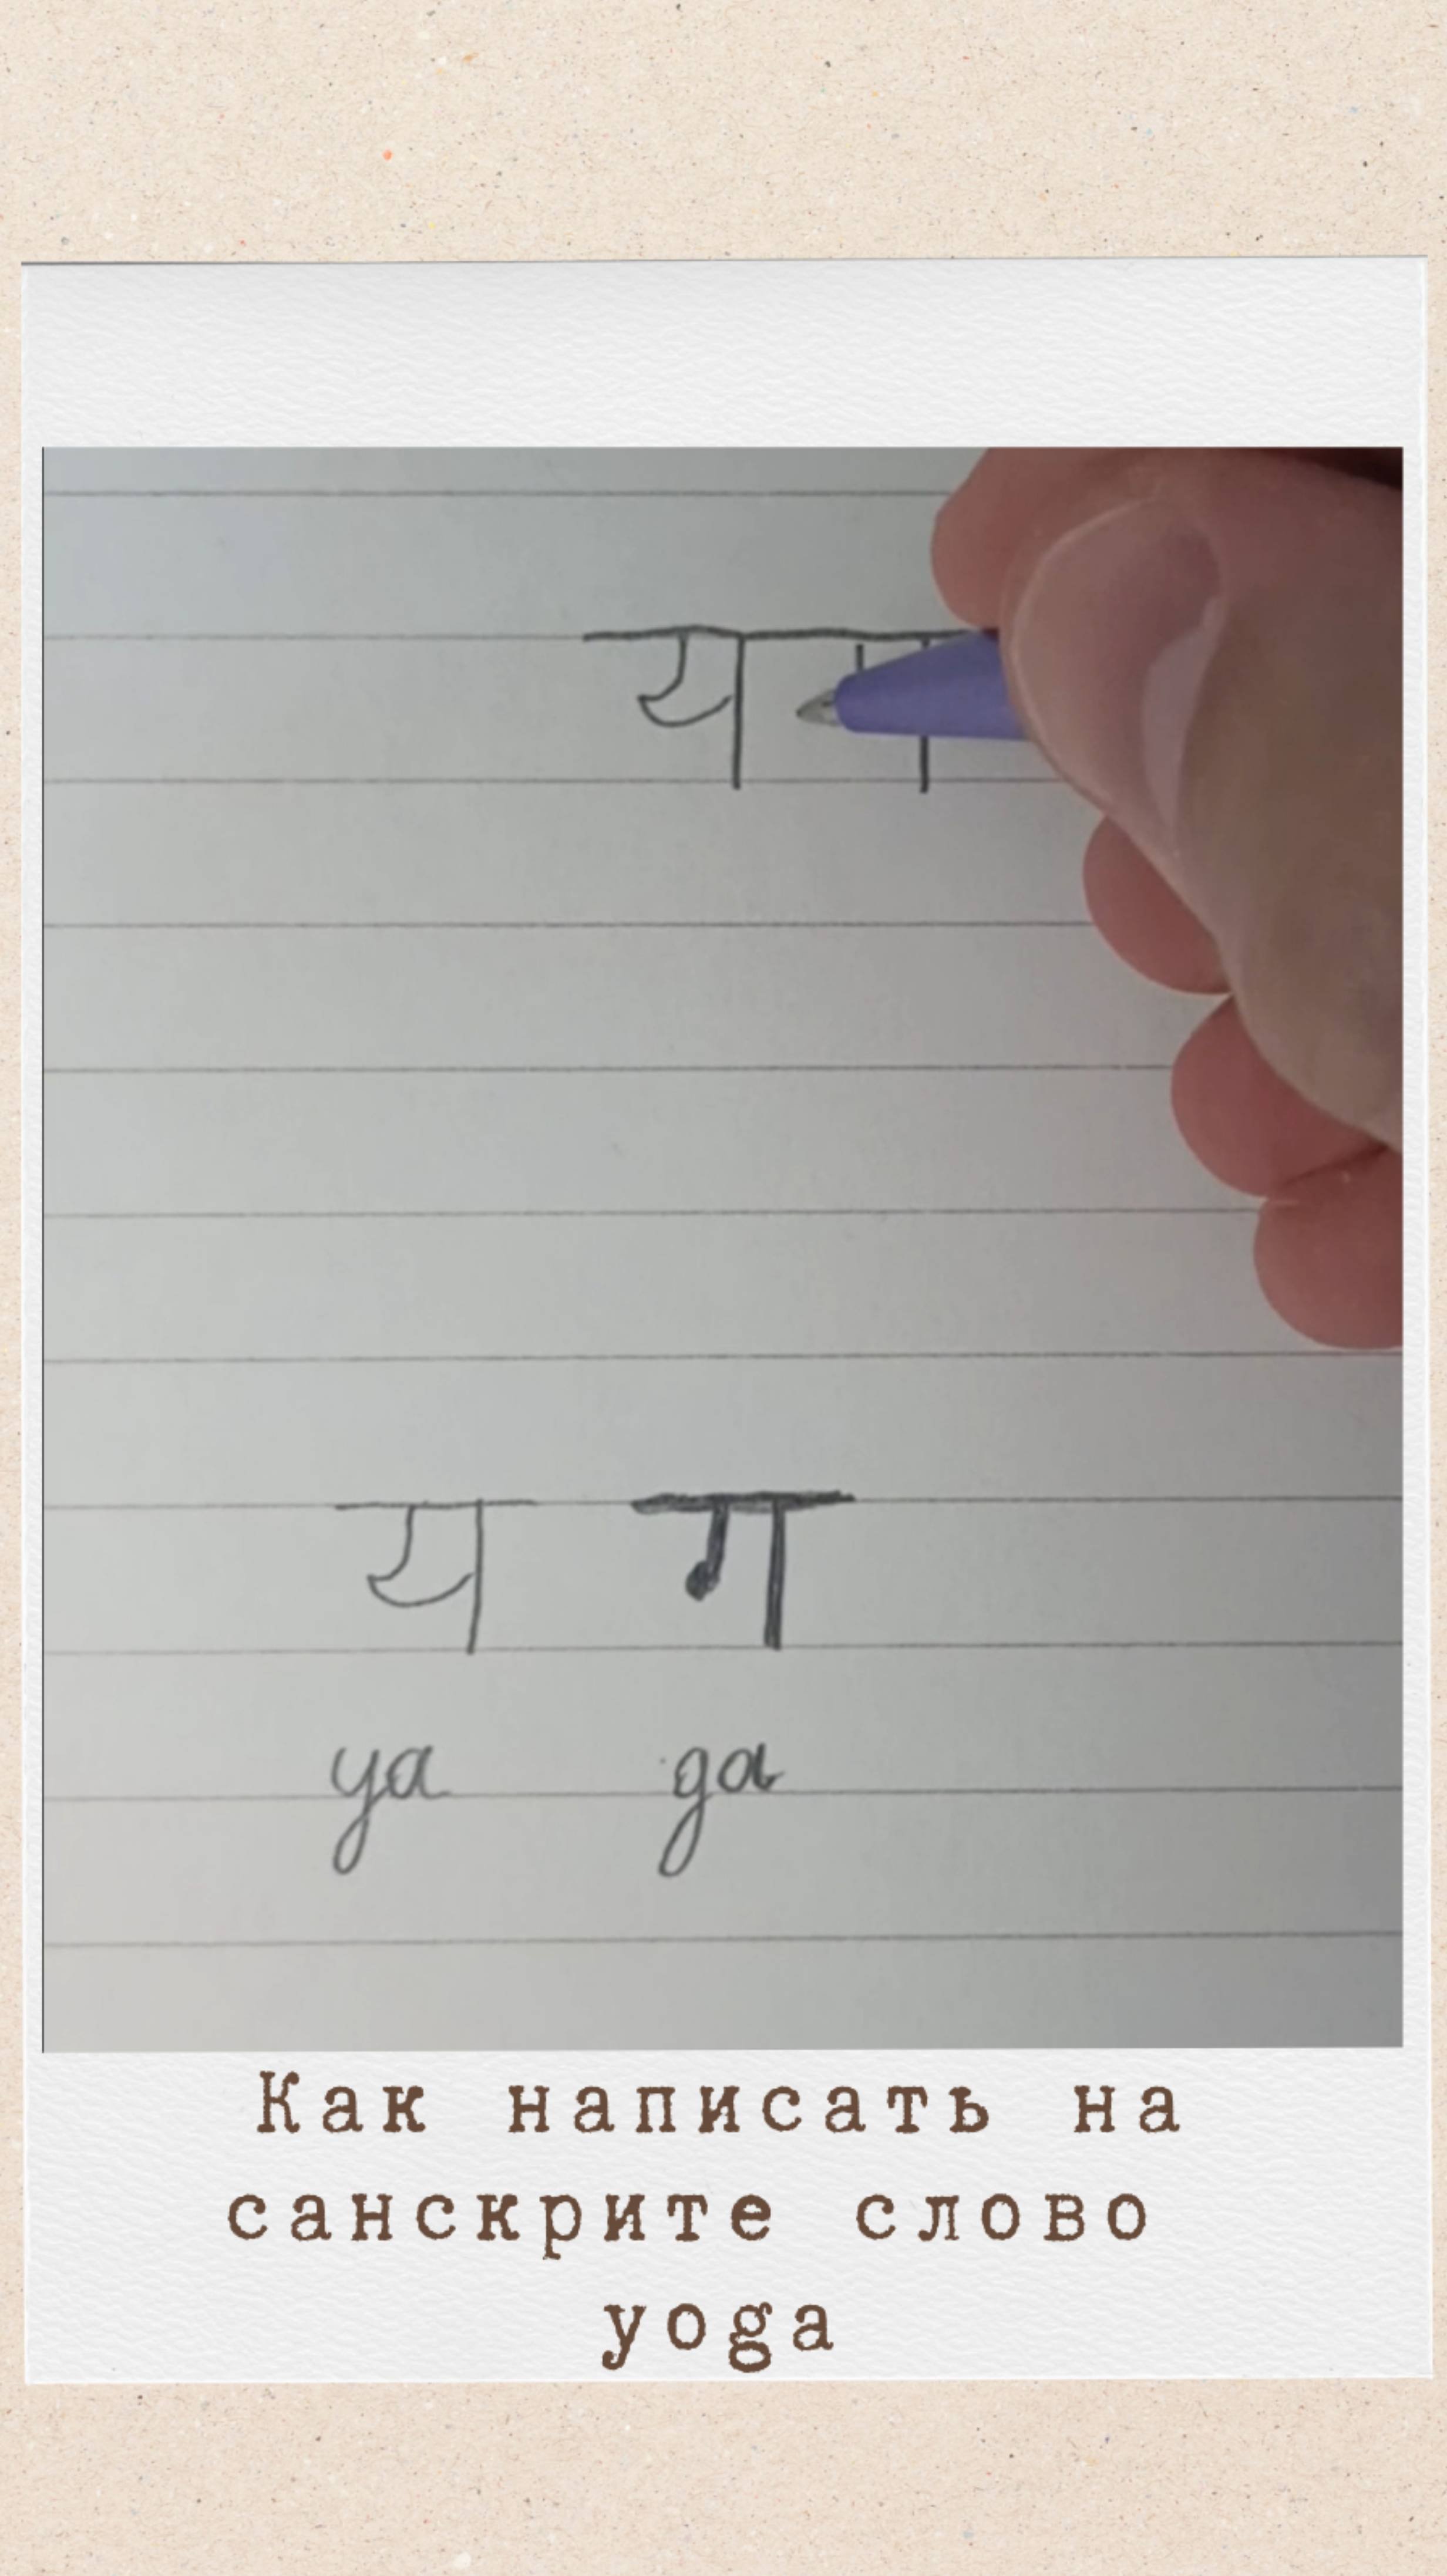 य
य ग
ya ga
Как написать на
санскрите слово
yoga